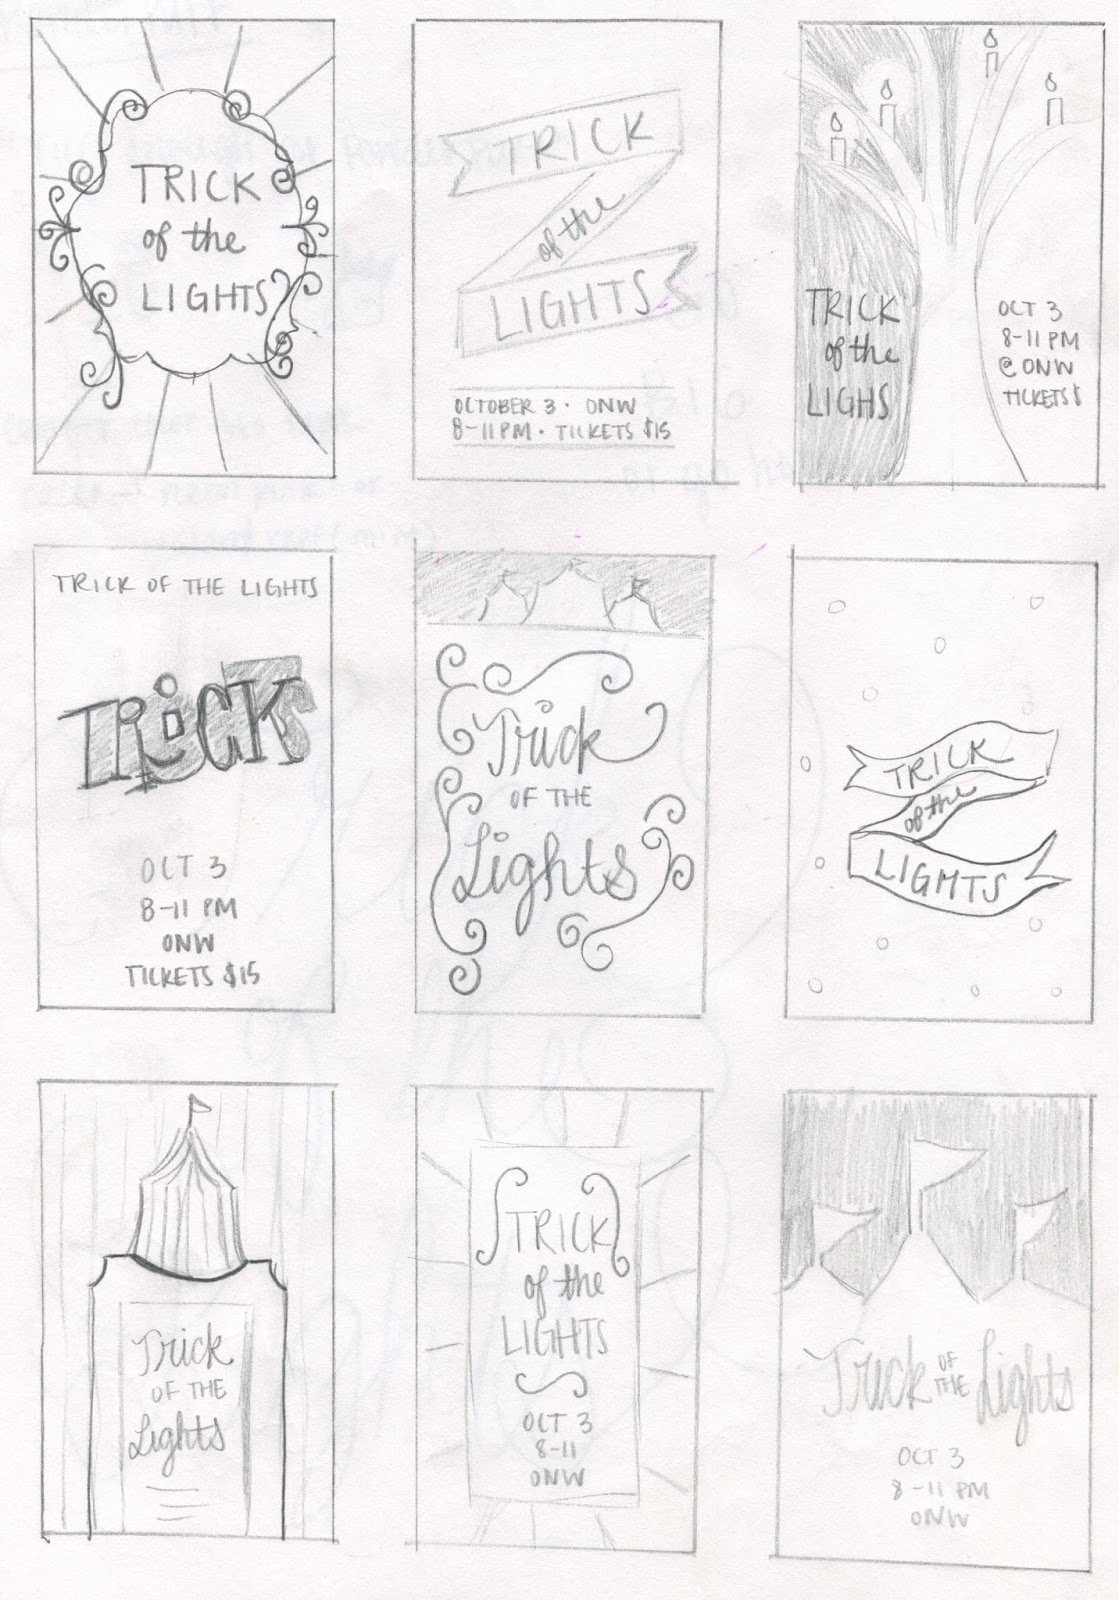 TRICK
of the
LIGHTS
TRICK
of the
LIGHTS
OCTOBER 3 · ONW
8-11PM · TICKETS $15
TRICK
of the
LIGHS
OCT 3
8-11 PM
@ ONW
TICKETS $
TRICK OF THE LIGHTS
TRiCK
OCT 3
8-11 PM
ONW
TICKETS $15
Trick
OF THE
Lights
TRICK
of the
LIGHTS
Trick
OF THE
Lights
TRICK
of the
LIGHTS
OCT 3
8-11
ONW
Trick OF THE Lights
OCT 3
8-11 PM
ONW